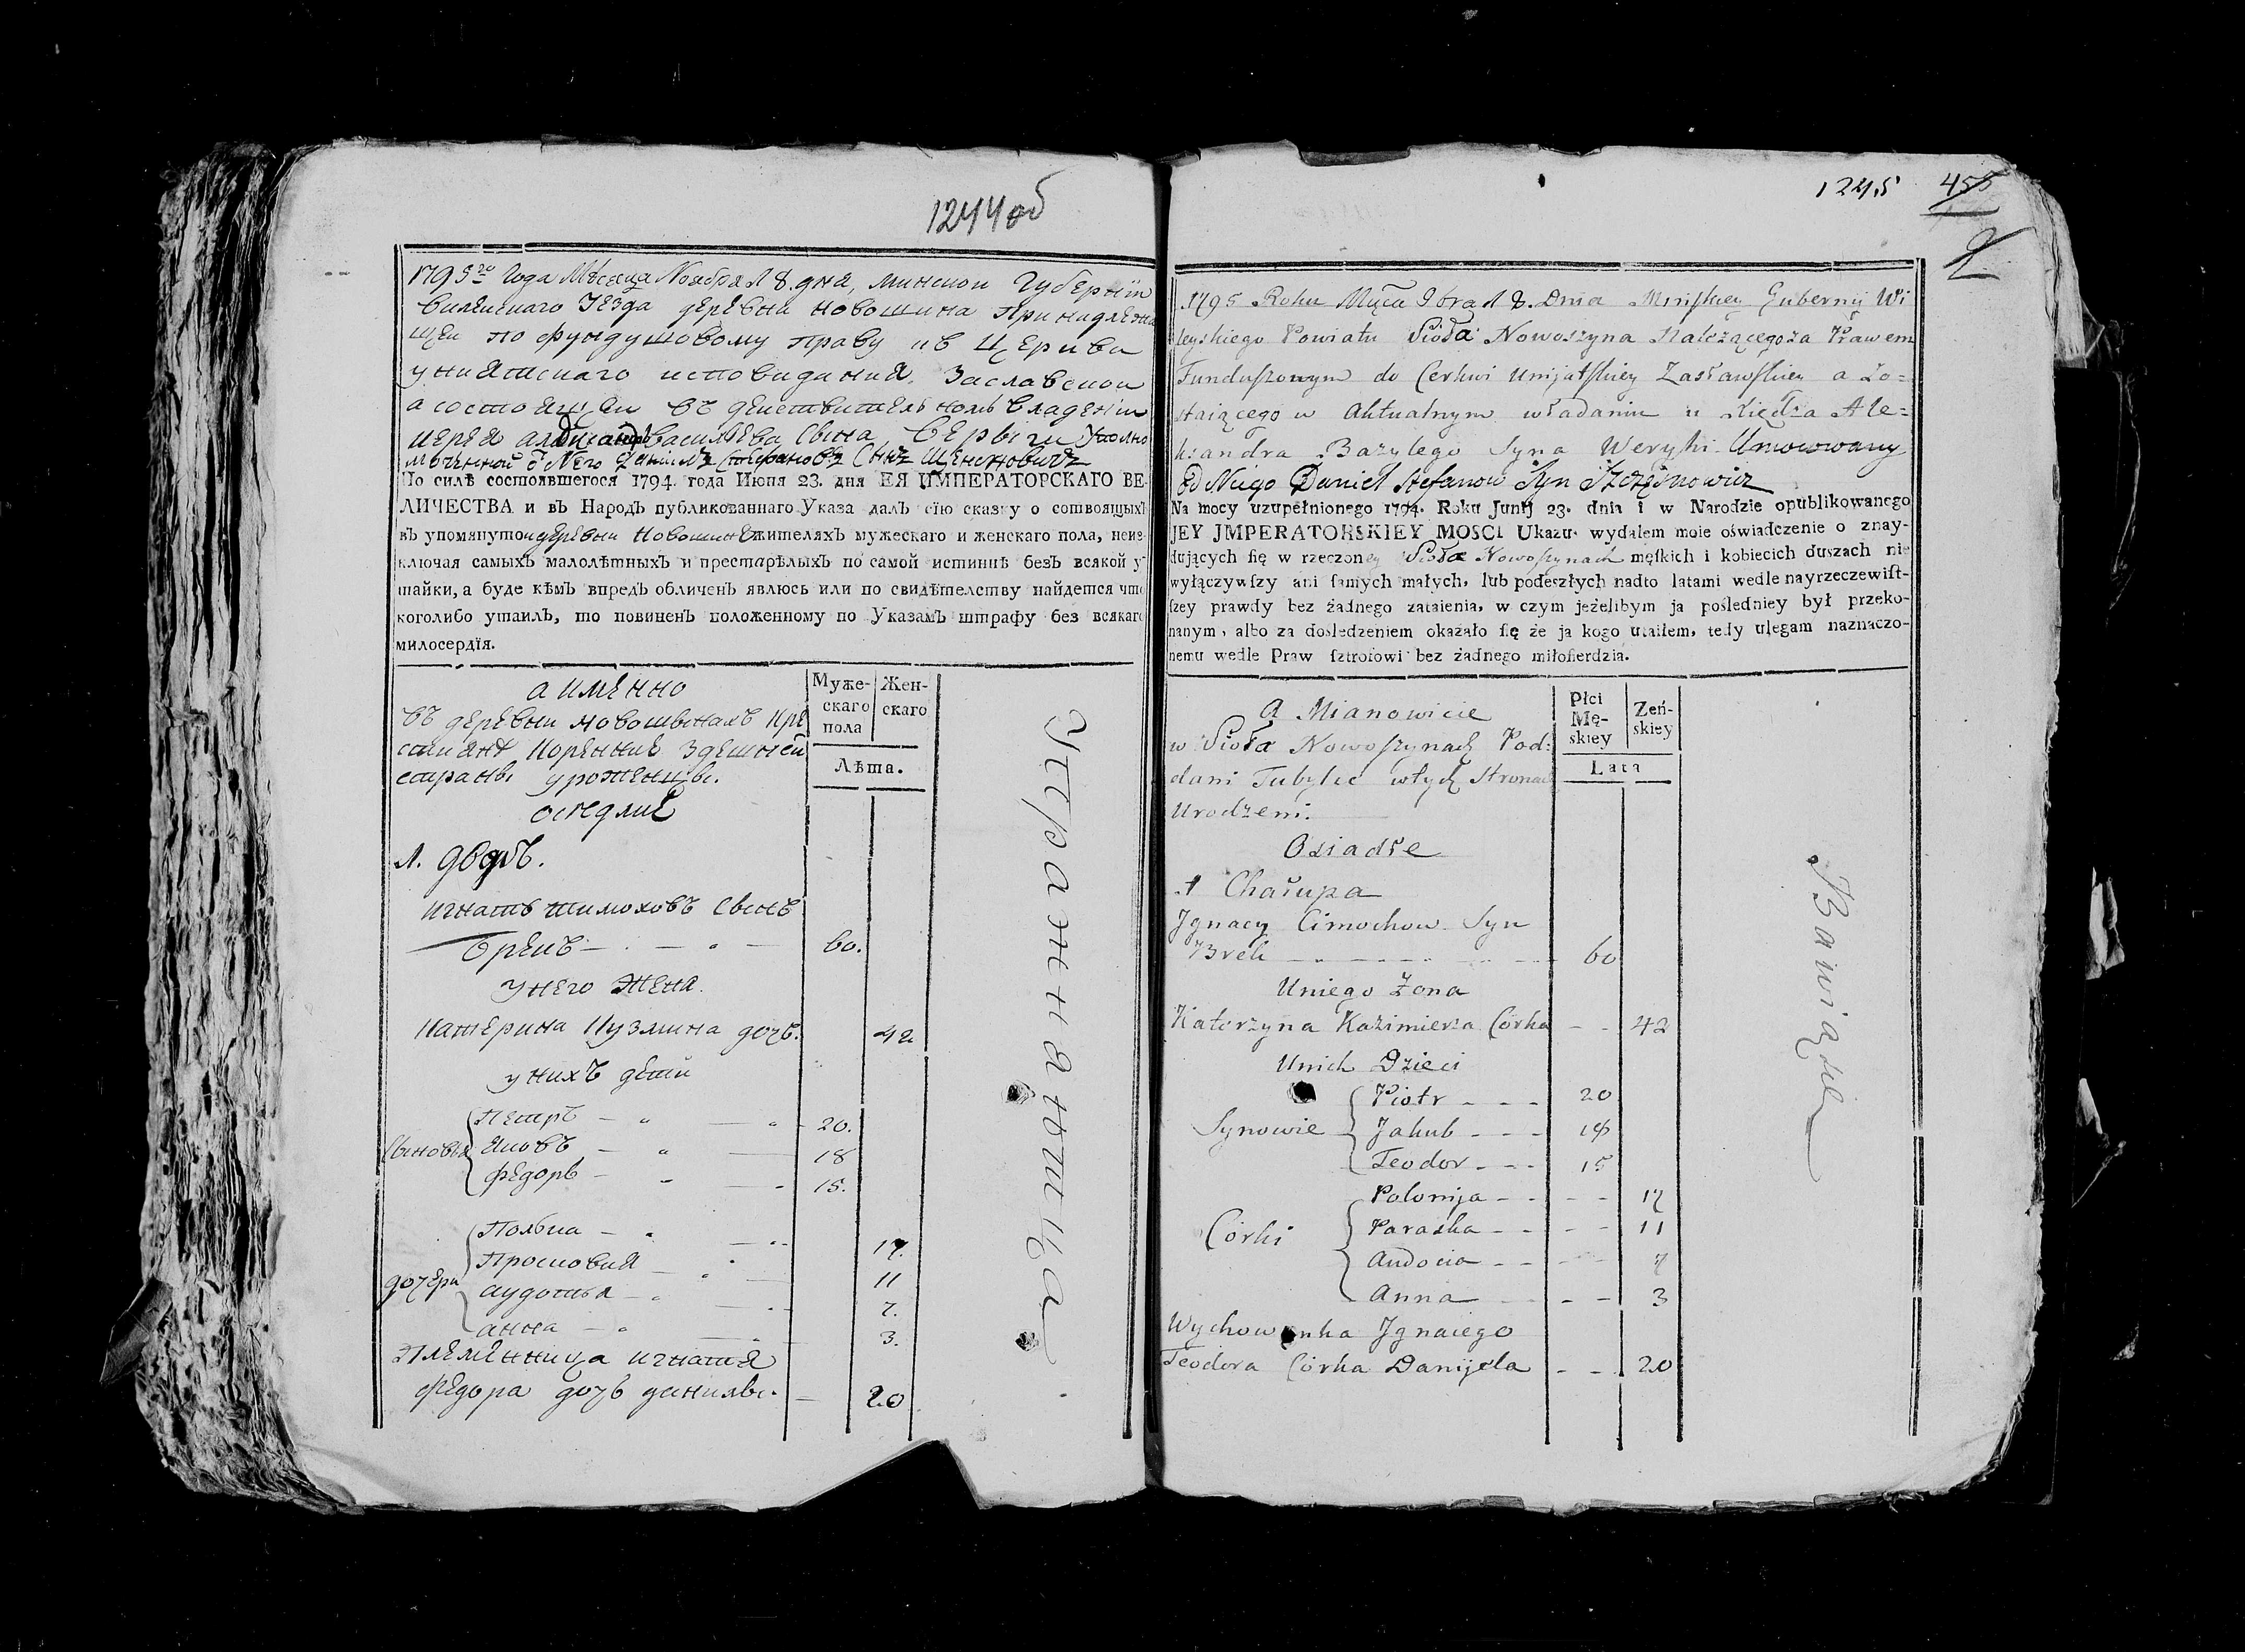 1244об
1795го Года Мѣсяца Ноября 18. дня, минскои Губерніи
Вилеискаго Уезда деревня новошина принадлежа
щеи по фундушовому праву къ Церкви
униятскаго исповидания Заславскои
а состоящеи въ деиствительномъ владеніи
иерея александра васильева сына Верыги Уполно
моченной от Него Даниилъ Стефановъ Снъ Щенсновичъ
По силѣ состоявшегося 1794. года Июня 23. дня ЕЯ ИМПЕРАТОРСКАГО ВЕ-
ЛИЧЕСТВА и въ Народъ публикованнаго Указа далъ сїю сказку о сотвоящыхъ
въ упомянутои деревни Новошине жителяхъ мужескаго и женскаго пола, неиз-
ключая самыхъ малолѣтныхъ и престарѣлыхъ по самой истиннѣ безъ всякой у
тайки, а буде кѣмъ впредь обличенъ явлюсь или по свидѣтелству найдется что
коголибо утаилъ, то повиненъ положенному по Указамъ штрафу без всякаго
милосердїя.
а именно
въ деревни новошынахъ кре
стиянѣ коренние здешней
страны уроженцы.
оседлие
Муже-
скаго
пола
Жен-
скаго
Лѣта.
1. дворъ.
игнатъ тимоховъ сынъ
брекъ 60.
у него жена.
катерина кузмина дочь. 42
у нихъ дети
Сыновья
Петръ 20.
Яковъ 18
федоръ 15.
дочери
Полька 17.
Просковия 11
аудотья 7.
анна 3.
племенница игнатия
федора дочь данилы. 20
Упражнятица
1245 455
2
1795 Roku Mŋca 9bra 18. Dnia Minskiey Gubernij Wi
leyskiego Powiatu Sioła Nowoszyna Należącego za Prawem
Funduszowym do Cerkwi Unijatskiey Zasławskiey a Zo=
staiącego w Aktualnym władaniu u Xiędza Ale=
ksandra Bazylego Syna Weryhi Umocowany
od Niego Daniel Stefanow Syn Szczęsnowicz
Na mocy uzupełnionego 1794. Roku Junij 23. dnia i w Narodzie opublikowanego
JEY JMPERATORSKIEY MOSCI Ukazu. wydałem moie oświadczenie o znay-
dujących się w rzeczoney Sioła Nowoszynach męſkich i kobiecich duszach nie
wyłączywſzy ani ſamych małych, lub podeszłych nadto latami wedle nayrzeczewiſt-
ſzey prawdy bez żadnego zataienia, w czym jeżelibym ja pośledniey był przeko-
nanym, albo za dosledzeniem okazało ſię że ja kogo utaiłem, tedy ulegam naznaczo-
nemu wedle Praw ſztrofowi bez żadnego miłoſierdzia.
A Mianowicie
w Sioła Nowoszynach Pod:
dani Tubylce w tych Stronach
Urodzeni.
Osiadłe
Płci
Mę-
skiey
Zeń-
skiey
Lata
1 Chałupa
Jgnacy Cimochow Syn
Brek 60
U niego Żona
Katerzyna Kazimierza Córka 42
U nich Dzieci
Synowie
Piotr 20
Jakub 18
Teodor 15
Córki
Polonija 17
Paraska 11
Andocia 7
Anna 3
Wychowanka Jgnacego
Teodora Córka Danijela 20